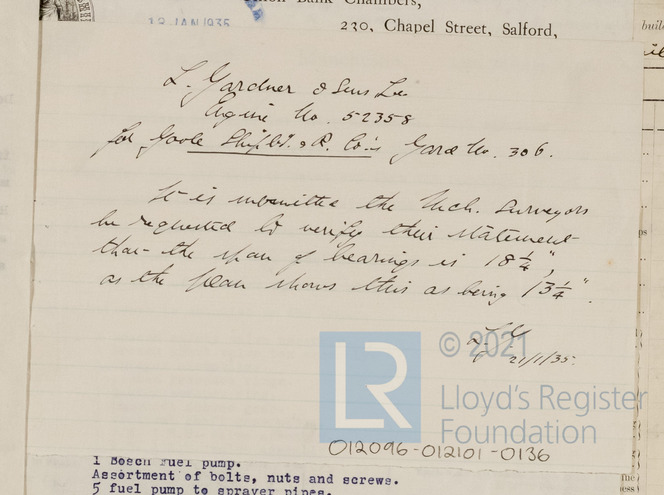 Bank Chambers,
18 JAN 1935
230, Chapel Street, Salford,
L. Gardner & Sons Ld
Engine No. 52358
for Goole Shipbd. & R. Co's Yard No. 306.
It is submitted the Mch. Surveyors
be requested to verify their statement
that the span of bearings is 18¼",
as the plan shows this as being 13¼".
21/1/35.
LR
© 2021
Lloyd's Register
Foundation
012096-012101-0136
1 Bosch fuel pump.
Assortment of bolts, nuts and screws.
5 fuel pump to sprayer pipes.